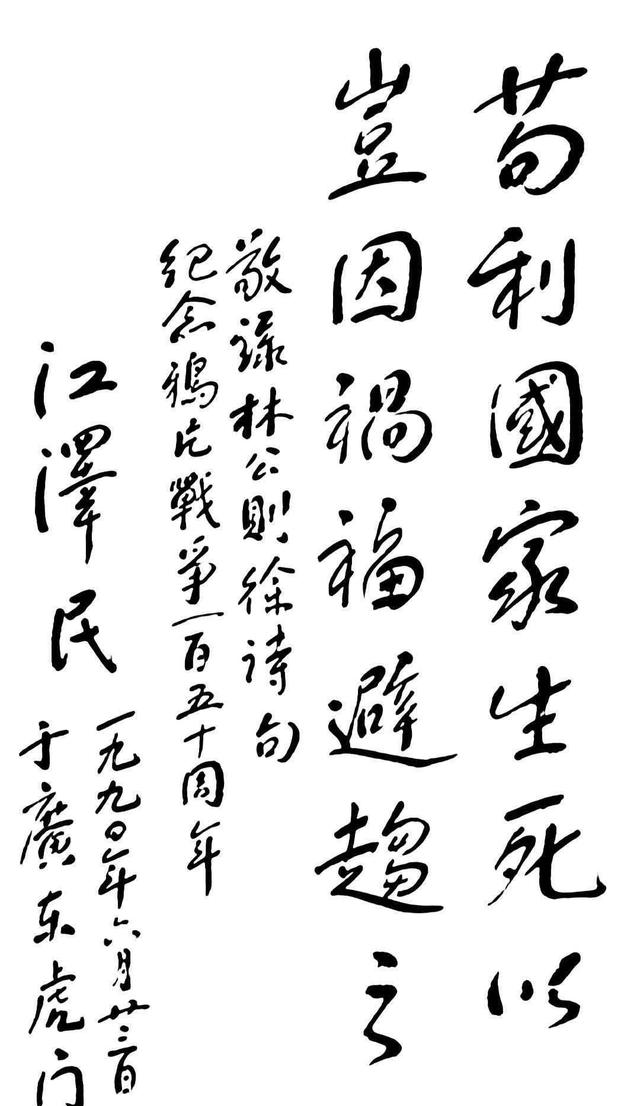 苟利國家生死以
豈因禍福避趨之
敬錄林公則徐诗句
纪念鴉片戰爭一百五十周年
江澤民
一九九〇年六月廿三日
于廣东虎门